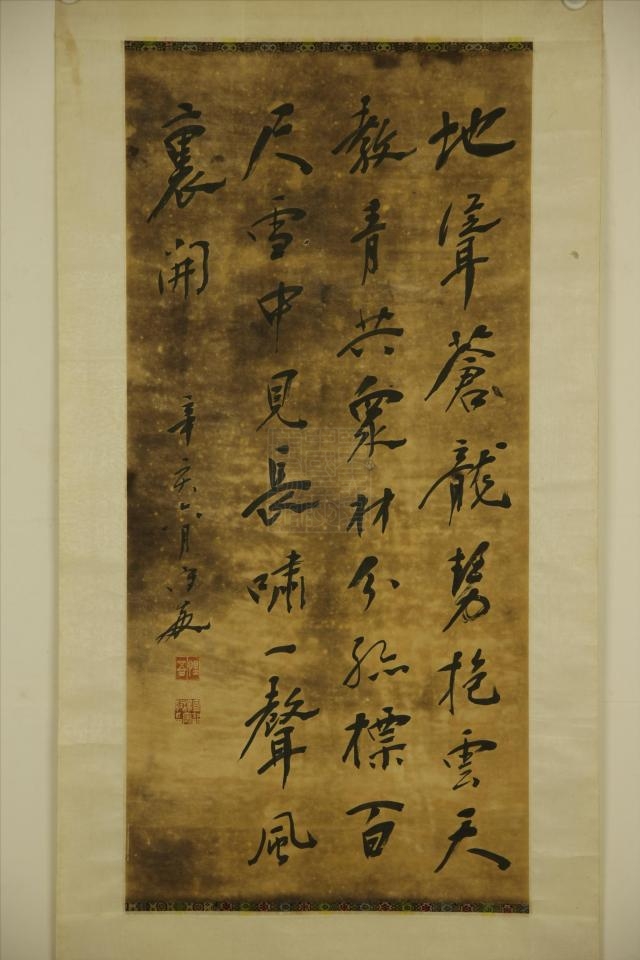 地聳蒼龍勢抱雲天
教青共衆材分孤標百
尺雪中見長嘯一聲風
裏開
辛亥六月